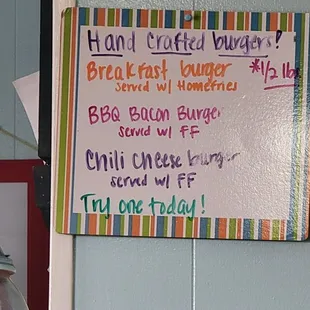 Hand Crafted burgers!
Breakfast burger
served w/ Homefries
*1/2 lb
BBQ Bacon Burger
served w/ FF
Chili Cheese burger
served w/ FF
Try one today!